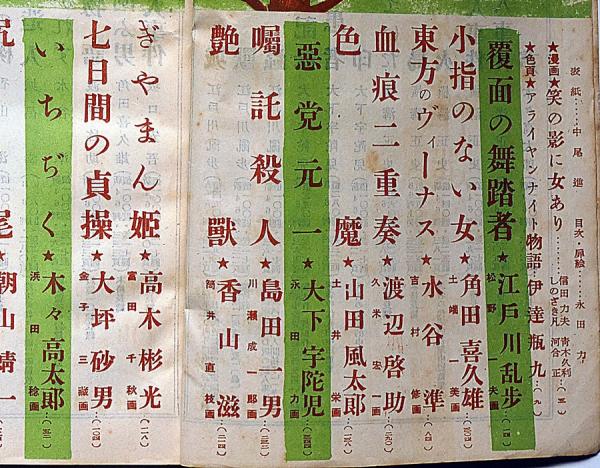 表紙……中尾進 目次・扉絵……永田力
★漫画★笑の影に女あり…信田力夫 青木久利 しのざき凡 河合正
★色頁★アライヤンナイト物語・伊達瓶九…
覆面の舞踏者★江戸川乱歩 松野一夫画
小指のない女★角田喜久雄 土端一美画
東方のヴィーナス★水谷準 吉村修画
血痕二重奏★渡辺啓助 久米宏一画
色魔★山田風太郎 土井栄画
悪党元一★大下宇陀児 永田力画
囑託殺人★島田一男 川瀬成一郎画
艶獣★香山滋 筒井直枝画
ぎやまん姫★高木彬光 富田千秋画
七日間の貞操★大坪砂男 金子三蔵画
いちぢく★木々高太郎 浜田稔画
尾★朝山蜻一